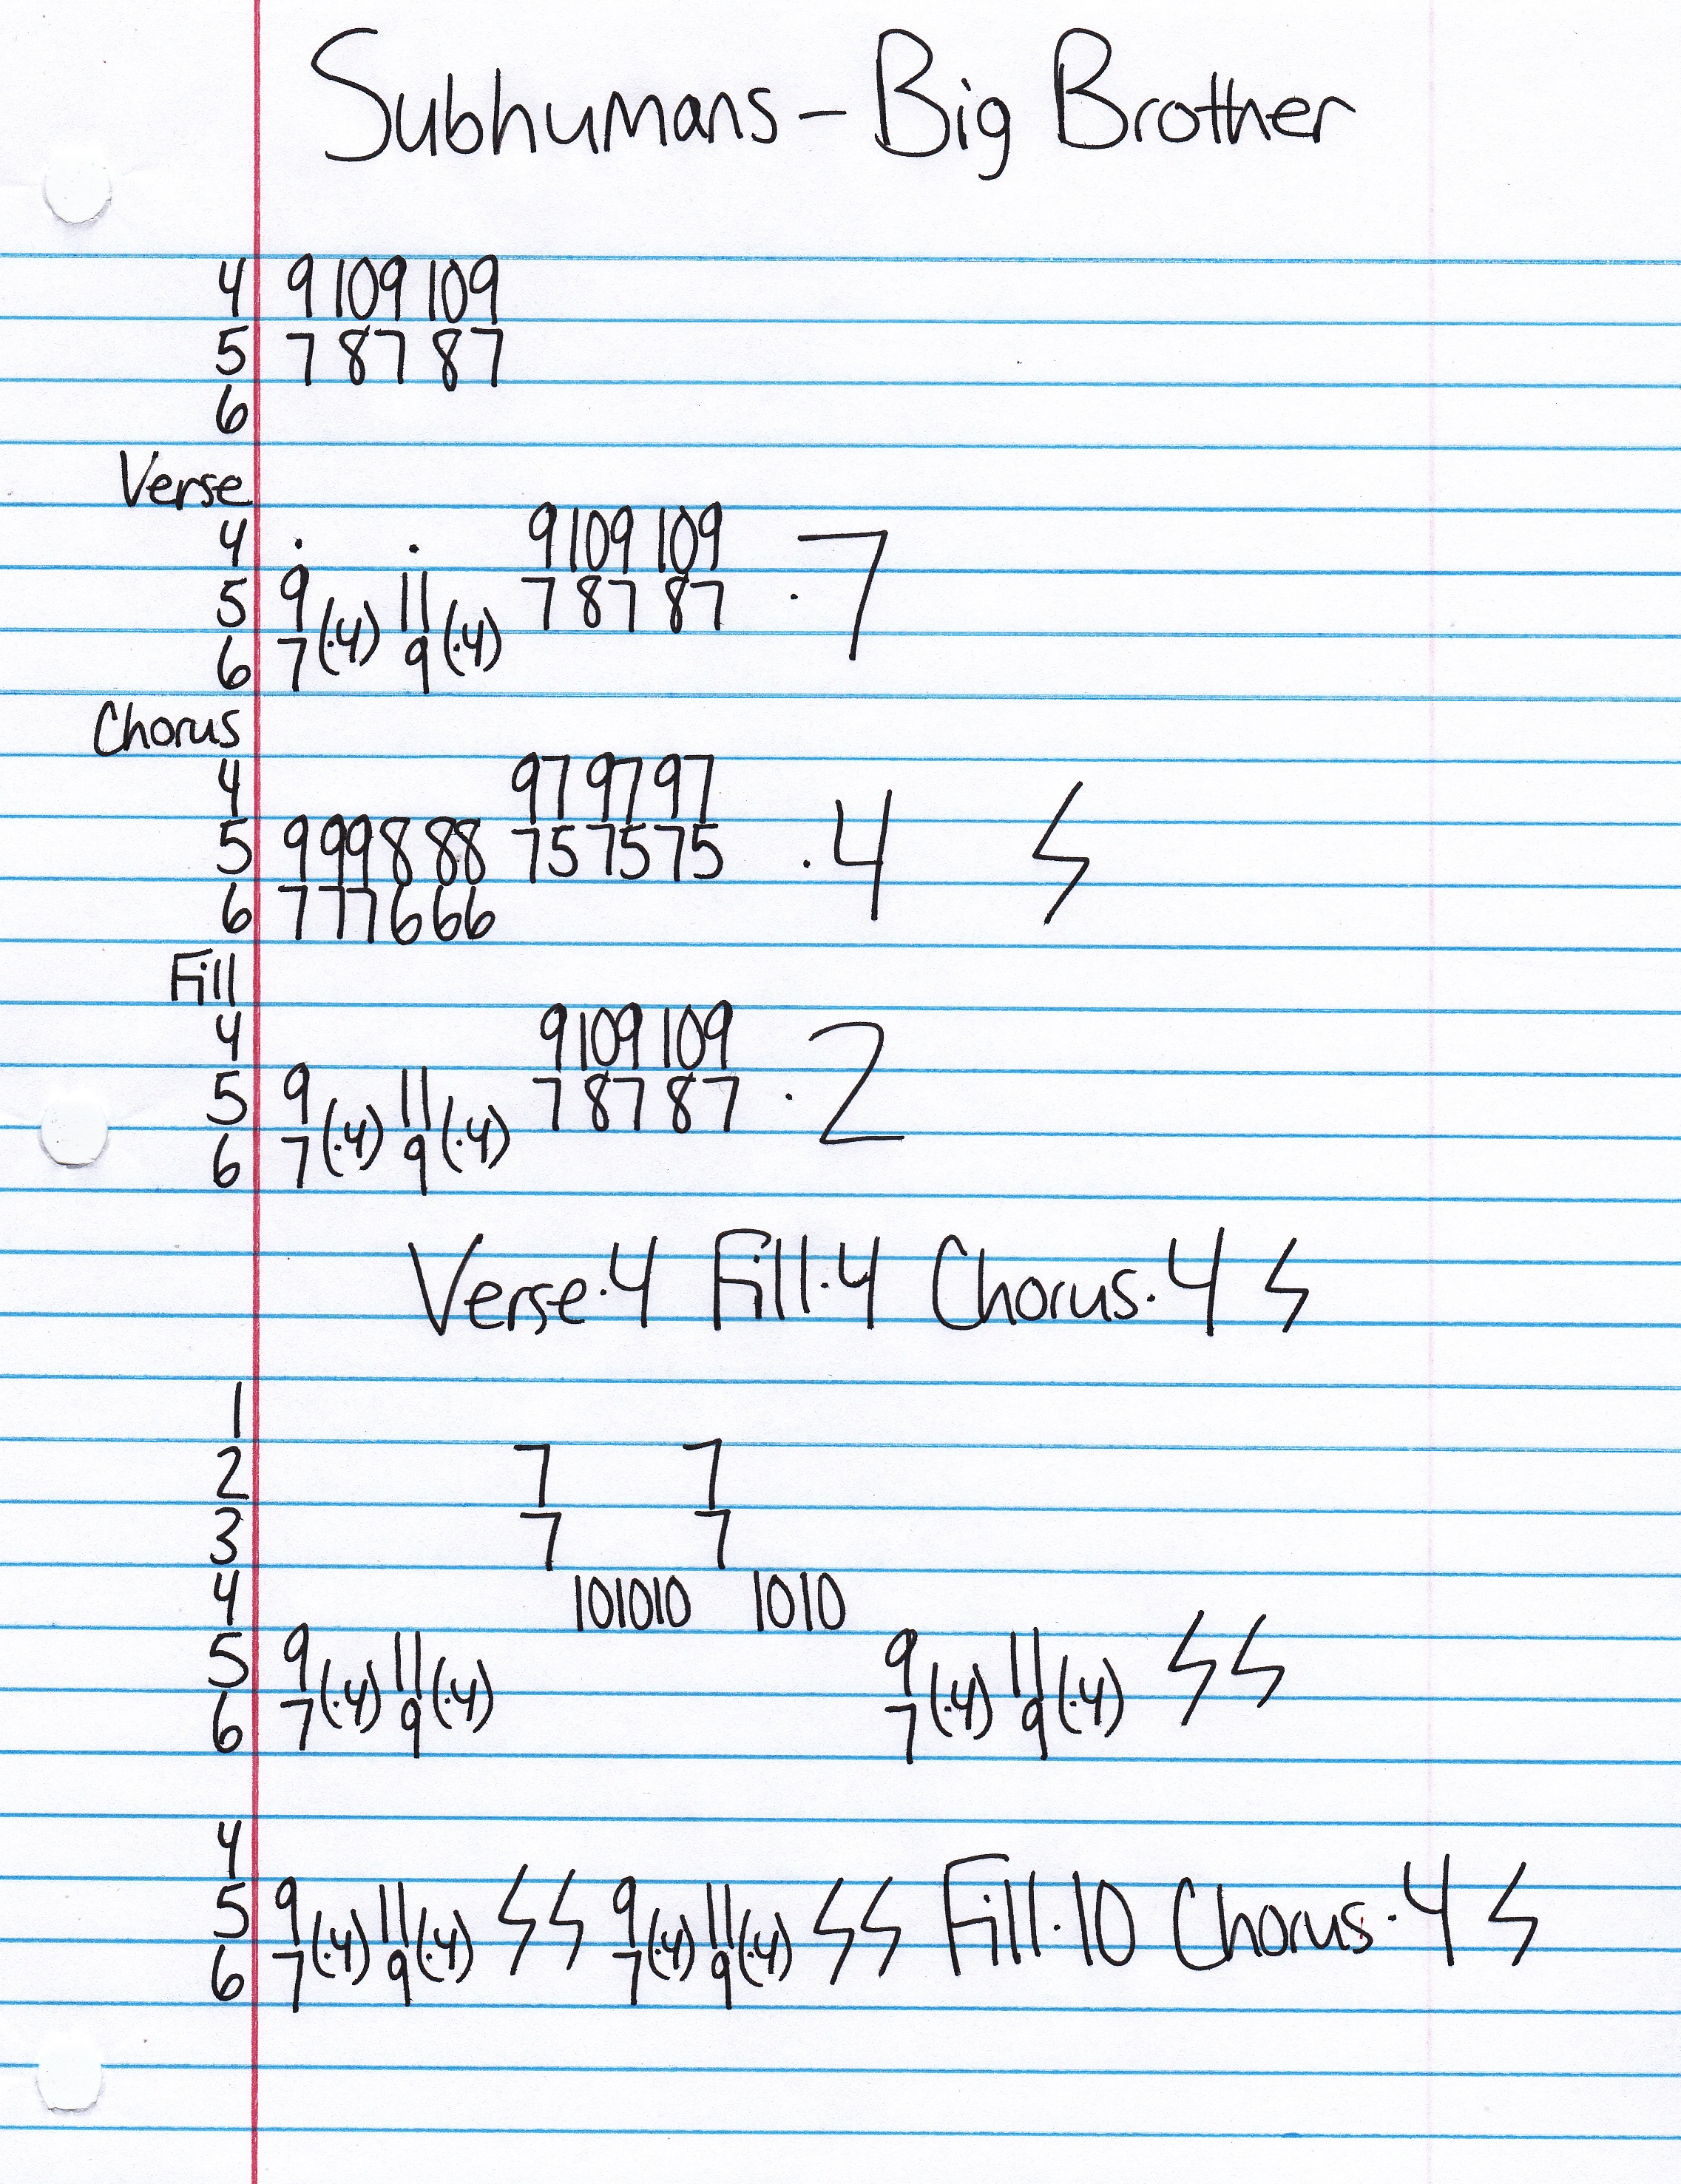 Subhumans - Big Brother
4 9 10 9 10 9
5 7 8 7 8 7
6
Verse
4 . . 9 10 9 10 9
5 9 11 7 8 7 8 7 ·7
6 7(·4) 9(·4)
Chorus
4 9 7 9 7 9 7
5 9 9 9 8 8 8 7 5 7 5 7 5 ·4 ϟ
6 7 7 7 6 6 6
Fill
4 9 10 9 10 9
5 9 11 7 8 7 8 7 ·2
6 7(·4) 9(·4)
Verse·4 Fill·4 Chorus·4 ϟ
1
2 7 7
3 7 7
4 10 10 10 10 10
5 9 11 9 11 ϟ ϟ
6 7(·4) 9(·4) 7(·4) 9(·4)
4
5 9 11 ϟ ϟ 9 11 ϟ ϟ Fill·10 Chorus·4 ϟ
6 7(·4) 9(·4) 7(·4) 9(·4)